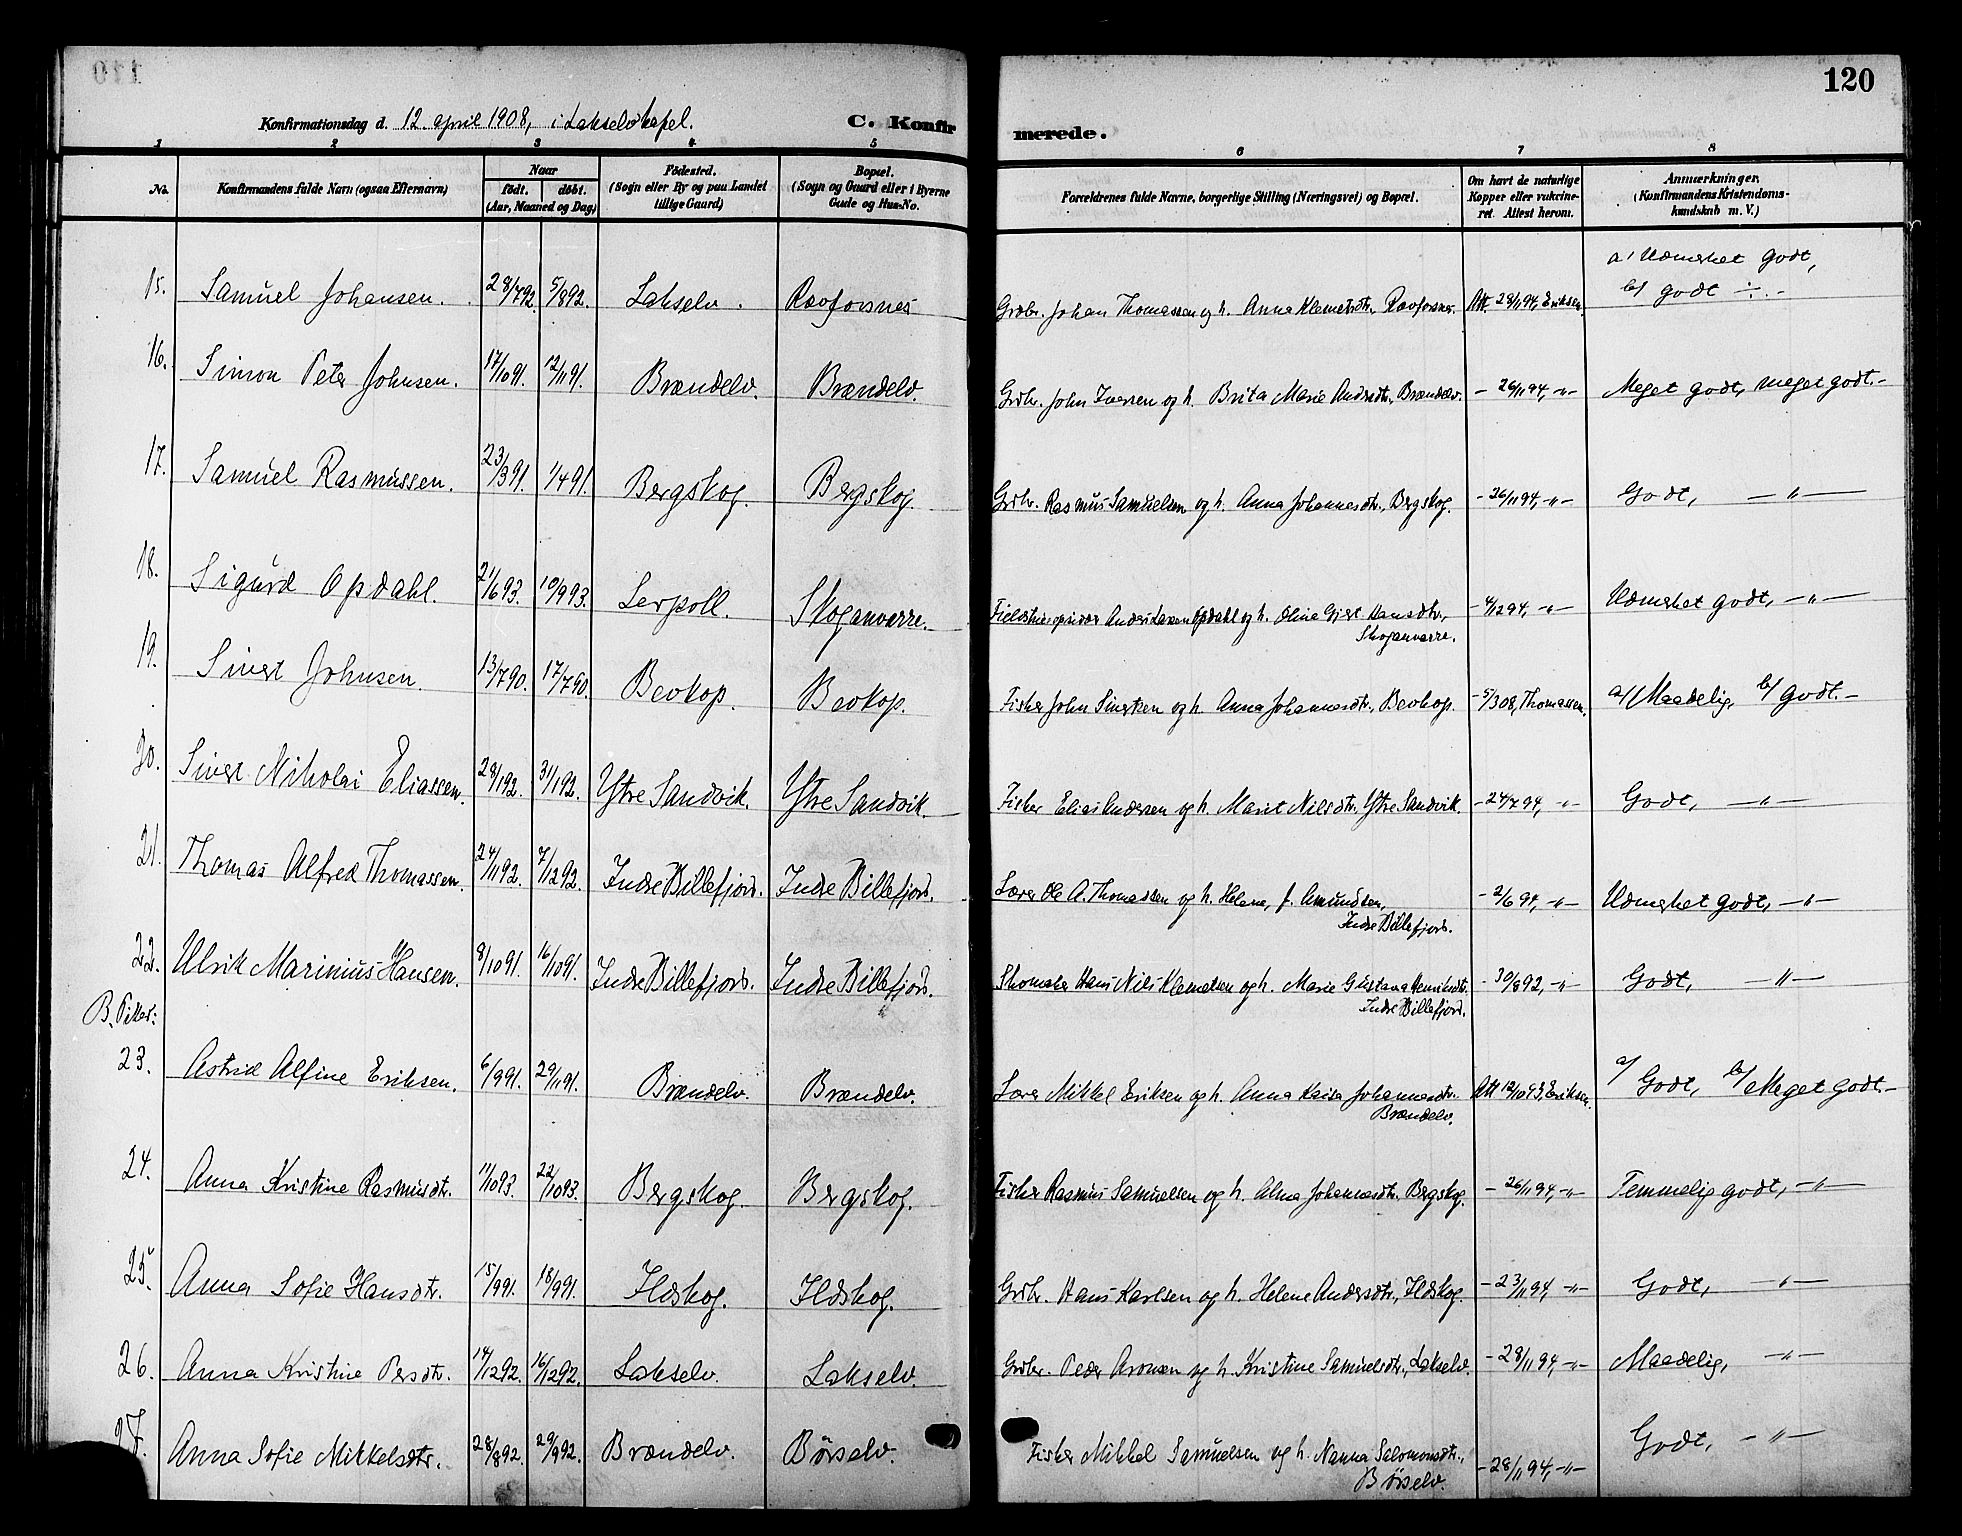 120
Konfirmationsdag d. 12 april 1908, i Lakselv kapel.
C. Konfirmerede.
1 2 3 4 5 6 7 8
No. | Konfirmandens fulde Navn (ogsaa Efternavn) | Naar födt. döbt. (Aar, Maaned og Dag) | Födested. (Sogn eller By og paa Landet tillige Gaard) | Bopæl. (Sogn og Gaard eller i Byerne Gade og Hus-No. | Forældrenes fulde Navne, borgerlige Stilling (Næringsvei) og Bopæl. | Om havt de naturlige Kopper eller vakcineret. Attest herom. | Anmærkninger. (Konfirmandens Kristendomskundskab m. V.)
15. Samuel Johansen. 28/7 92. 5/8 92. Lakselv. Ravfosnes Grdbr. Johan Thomassen og h. Anna Klemetsdtr., Ravfosnes. Att. 28/11 94, Eriksen. a/ Udmerket godt, b/ godt
16. Simon Peter Johnsen. 17/10 91. 12/11 91. Brændelv. Brændelv. Grdbr. John Iversen og h. Brita Marie Andersdtr., Brændelv. - 26/11 94, -"- Meget godt, meget godt.-
17. Samuel Rasmussen. 23/3 91. 1/4 91. Bergskog. Bergskog. Grdbr. Rasmus Samuelsen og h. Anna Johannesdtr., Bergskog. - 26/11 94, -"- Godt, -"-
18. Sigurd Opdahl. 21/6 93. 10/9 93. Lerpoll. Skoganvarre. Anders Larsen Opdahl og h. Oline Gjert Hansdtr., Skoganvarre. - 4/12 94, -"- Udmerket godt, -"-
19. Sivert Johnsen. 13/7 90. 17/7 90. Bevkop. Bevkop. Fisker John Sivertsen og h. Anna Johannesdtr., Bevkop. - 5/3 08, Thomassen. a/ Maadelig, b/ godt.-
20. Sivert Nikolai Eliassen. 28/1 92. 31/1 92. Ytre Sandvik. Ytre Sandvik. Fisker Elias Andersen og h. Marit Nilsdtr. Ytre Sandvik. - 24/7 94, -"- Godt, -"-
21. Thomas Alfred Thomassen. 24/11 92. 7/12 92. Indre Billefjord. Indre Billefjord. Lærer Ole A. Thomassen og h. Helene, f. Amundsen, Indre Billefjord. - 2/6 94, -"- Udmerket godt, -"-
22. Ulrik Marinius Hansen. 8/10 91. 16/10 91. Indre Billefjord. Indre Billefjord. Skomaker Hans Nils Klemetsen og h. Marie Gustava Henriksdtr. Indre Billefjord. - 30/8 92, -"- Godt, -"-
B. Piker:
23. Astrid Alfine Eriksen. 6/9 91. 29/11 91. Brændelv. Brændelv. Lærer Mikkel Eriksen og h. Anna Kaisa Johannesdtr. Brændelv. Att 12/10 93, Eriksen. a/ Godt, b/ Meget godt.-
24. Anna Kristine Rasmusdtr. 11/10 93. 22/10 93. Bergskog. Bergskog. Fisker Rasmus Samuelsen og h. Anna Johannesdtr., Bergskog. - 26/11 94, -"- Temmelig godt, -"-
25. Anna Sofie Hansdtr. 15/9 91. 18/9 91. Ildskog. Ildskog. Grdbr. Hans Karlsen og h. Helene Andersdtr., Ildskog. - 23/11 94, -"- Godt, -"-
26. Anna Kristine Persdtr. 14/12 92. 16/12 92. Lakselv. Lakselv. Grdbr. Peder Aronsen og h. Kristine Samuelsdtr., Lakselv. - 28/11 94, -"- Maadelig, -"-
27. Anna Sofie Mikkelsdtr. 28/8 92. 29/9 92. Brændelv. Børselv. Fisker Mikkel Samuelsen og h. Nanna Salomonsdtr., Børselv. - 28/11 94, -"- Godt, -"-